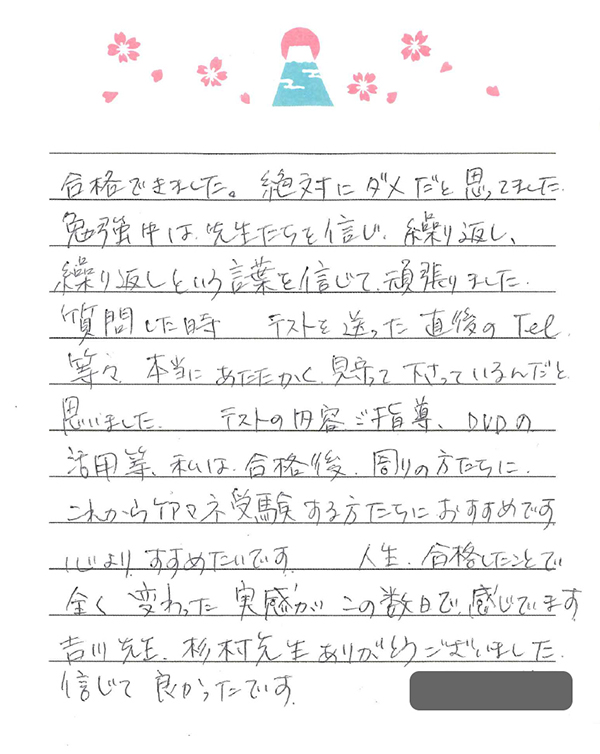 合格できました。絶対にダメだと思ってました.
勉強中は、先生たちを信じ、繰り返し、
繰り返しという言葉を信じて、頑張りました.
質問した時　テストを送った直後のTel
等々 本当にあたたかく見守って下さっているんだと
思いました.　テストの内容ご指導、DVDの
活用等、私は、合格後、周りの方たちに、
これからケアマネ受験する方たちにおすすめです
心よりすすめたいです.　人生、合格したことで
全く変わった実感がこの数日で感じています
吉川先生、杉村先生ありがとうございました.
信じて良かったです.